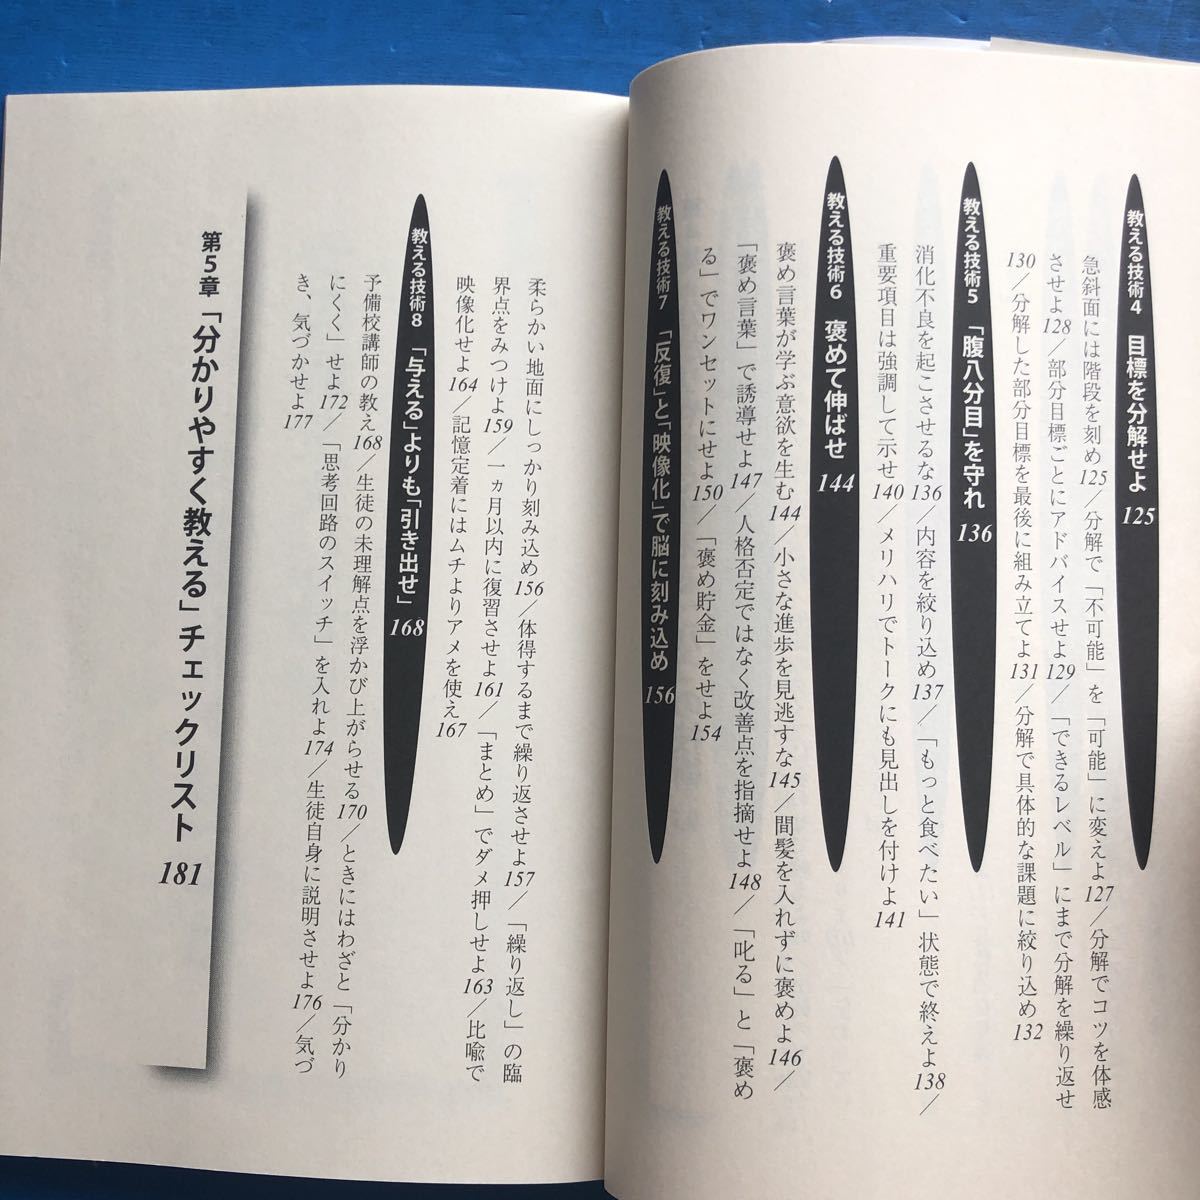 教える技術4 目標を分解せよ 125
急斜面には階段を刻め125／分解で「不可能」を「可能」に変えよ127／分解でコツを体感
させよ128／部分目標ごとにアドバイスせよ129／「できるレベル」にまで分解を繰り返せ
130／分解した部分目標を最後に組み立てよ131／分解で具体的な課題に絞り込め132
教える技術5 「腹八分目」を守れ 136
消化不良を起こさせるな136／内容を絞り込め137／「もっと食べたい」状態で終えよ138／
重要項目は強調して示せ140／メリハリでトークにも見出しを付けよ141
教える技術6 褒めて伸ばせ 144
褒め言葉が学ぶ意欲を生む144／小さな進歩を見逃すな145／間髪を入れずに褒めよ146／
「褒め言葉」で誘導せよ147／人格否定ではなく改善点を指摘せよ148／「叱る」と「褒め
る」でワンセットにせよ150／「褒め貯金」をせよ154
教える技術7 「反復」と「映像化」で脳に刻み込め 156
柔らかい地面にしっかり刻み込め156／体得するまで繰り返させよ157／「繰り返し」の臨
界点をみつけよ159／一ヵ月以内に復習させよ161／「まとめ」でダメ押しせよ163／比喩で
映像化せよ164／記憶定着にはムチよりアメを使え167
教える技術8 「与える」よりも「引き出せ」 168
予備校講師の教え168／生徒の未理解点を浮かび上がらせる170／ときにはわざと「分かり
にくく」せよ172／「思考回路のスイッチ」を入れよ174／生徒自身に説明させよ176／気づ
き、気づかせよ177
第5章「分かりやすく教える」チェックリスト 181